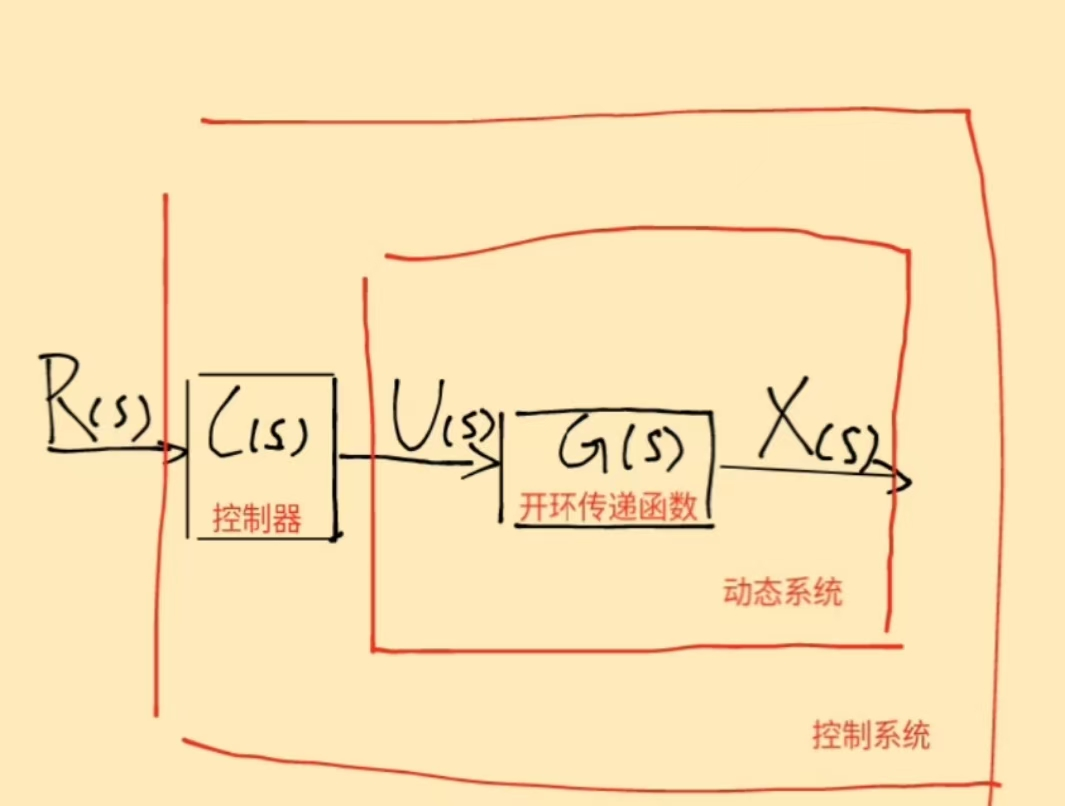 R(s)
C(s)
控制器
U(s)
G(s)
开环传递函数
X(s)
动态系统
控制系统